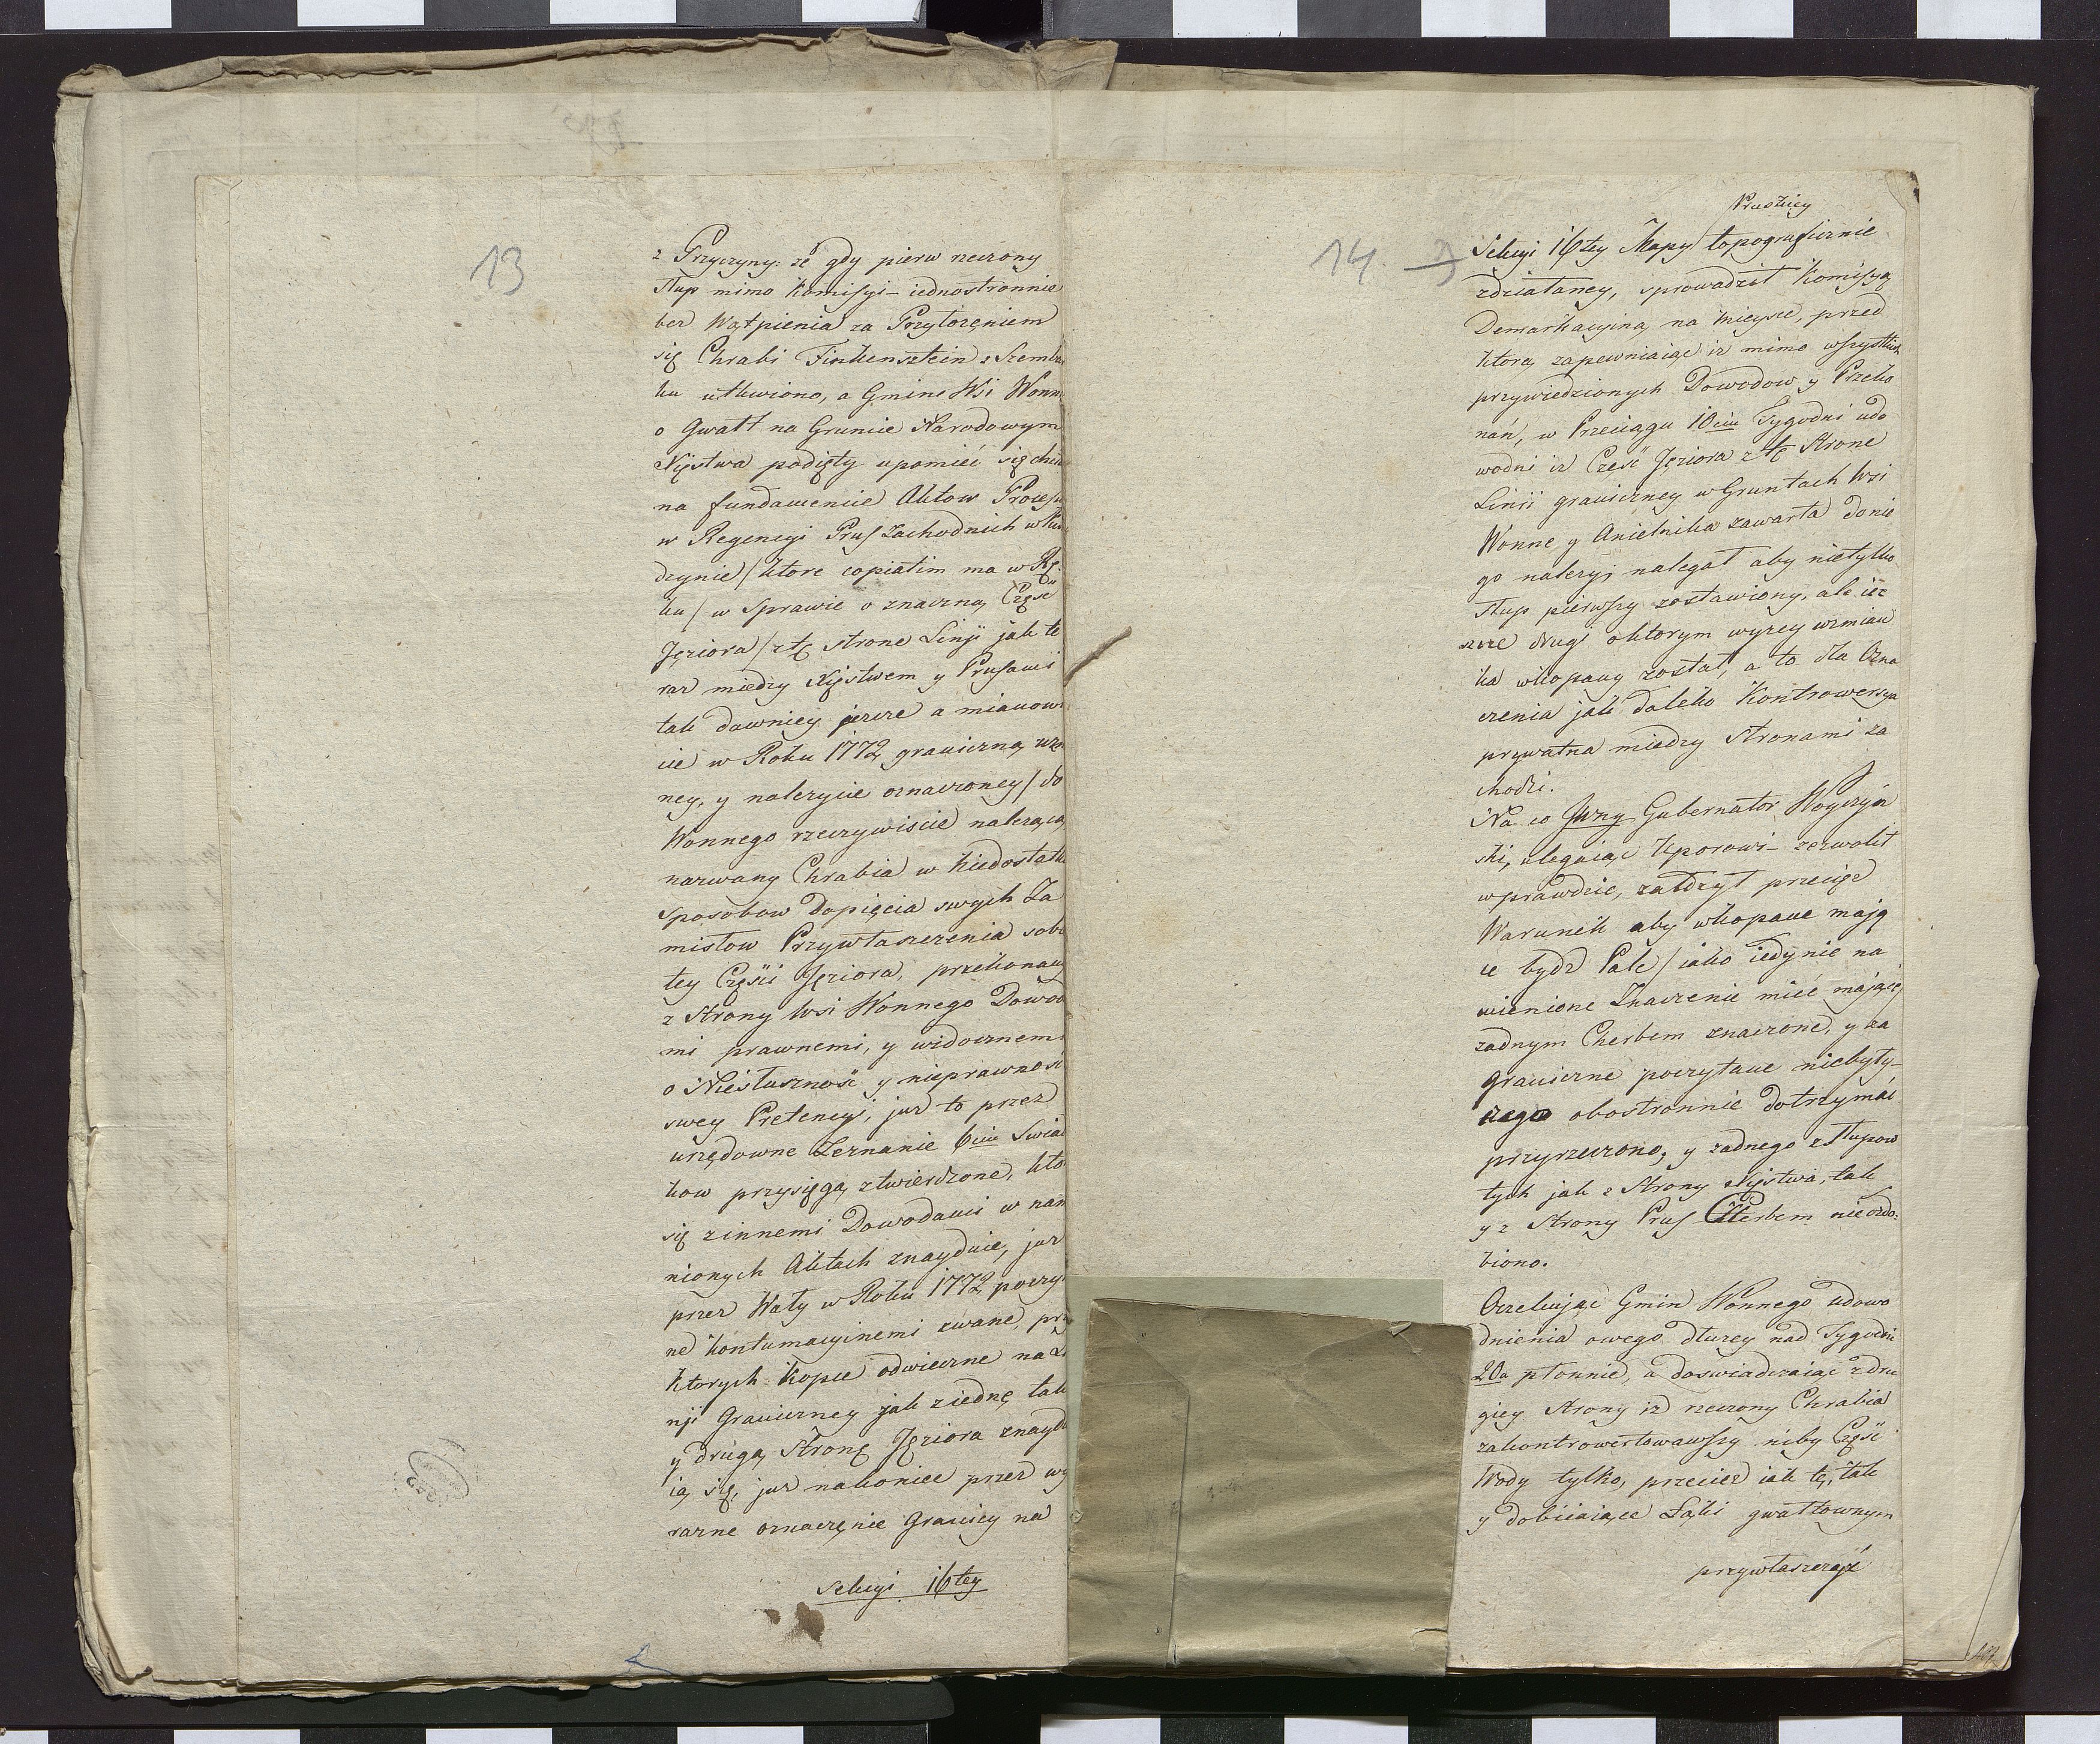 13
z Przyczyny: że gdy pierw rzeczony
Słup mimo Komisyi – iednostronnie
bez Wątpienia za Przyłożęniem
się Chrabi Finkensztein z Szembr
ku utkwiono, a Gmine Wsi Wonn
o Gwałt na Gruncie Narodowym
Xięstwa podięty upomieć się chci
na fundamencie Aktow Procesu
w Regencyi Prus Zachodnich w Kwi
dzynie / ktore copiatim ma w Rę
ku / w Sprawie o znaczną Część
Jęziora / z tę strone Linji jak te
raz miedzy Xięstwem y Prusami
tak dawniey jeszcze a mianow
cie w Roku 1772 graniczną uzn
ney, y należycie oznaczoney / do
Wonnego rzeczywiscie należącą
nazwany Chrabia w Niedostatk
Sposobow Dopięcia swych Za
mistow Przywłaszczenia sobi
tey Części Jęziora, przekonan
z Strony Wsi Wonnego Dowod
mi prawnemi, y widocznem
o Niesłuszność y nieprawność
swey Pretencyi, już to przez
urzędowne Zeznanie 6ciu Swiad
kow przysięgą ztwierdzone, kto
się z innemi Dowodami w nam
nionych Aktach znayduie, już
przez Wały w Roku 1772 poczy
ne Kontumacyinemi zwane, prz
ktorych Kopce odwieczne na Li
nji Graniczney jak z iednę tak
y drugą Stronę Jęziora znayd
ią się, już nakoniec przez wy
razne oznaczęnie Granicy na
Sekcyi 16tey
14. 7
Pruskiey
Sekcyi 16tey Mapy topograficznie
zdziałaney, sprowadził Komisyą
Demarkacyiną na mieysce, przed
ktorą zapewniaiąc iz mimo wszystkich
przywiedzionych Dowodow y Przeko
nań, w Przeciągu 10ciu Tygodni udo
wodni iz Część Jęziora z tę Strone
Linii graniczney w Gruntach Wsi
Wonne y Anielnika zawarta do nie
go należy; nalegał aby nietylko
Słup pierwszy zostawiony, ale ies
zcze drugi o ktorym wyzey wzmian
ka wkopany został, a to dla Ozna
czenia jak daleko Kontrowersya
prywatna miedzy Stronami za
chodzi.
Na co JWny Gubernator Woyczyń
ski, ulegaiąc Uporowi – zezwolił
wprawdzie, załozył przecięc
Warunek aby wkopane mają
ce bydz Pale / iako iedynie na
mienione Znaczenie mieć mające
zadnym Cherbem znaczone, y za
graniczne poczytane niebyły –
czego obostronnie dotrzymać
przyrzeczono, y zadnego z Słupow
tych jak z Strony Xięstwa, tak
y z Strony Prus Cherbem nie ozdo:
biono.
Oczekując Gmin Wonnego udowo
dnienia owego dłuzey nad Tygodni
20a płonnie, a doswiadczaiąc z dru
giey Strony iz rzeczony Chrabia
zakontrowertowawszy niby Część
Wody tylko, przeciez iak tę, tak
y dobiiaiące Łąki gwałtownym
przywłaszczać